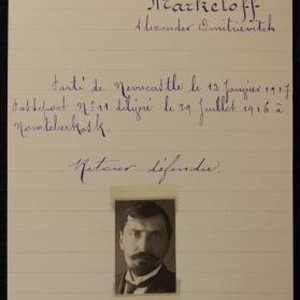 Markeloff
Alexander Dmitrievitch
Parti de Newcastle le 12 Janvier 1917
Passeport N° 11 délivré le 29 Juillet 1916 à
Novotcherkask.
Retour défendu.